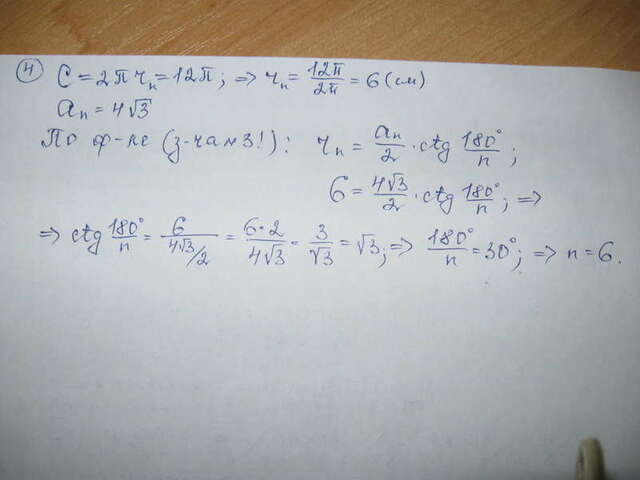 ④ C = 2πrₙ = 12π; ⇒ rₙ = 12π/2π = 6 (см)
aₙ = 4√3
По ф-ле (з-чам 3!): rₙ = aₙ/2 · ctg 180°/n;
6 = 4√3/2 · ctg 180°/n; ⇒
⇒ ctg 180°/n = 6/(4√3/2) = 6·2/4√3 = 3/√3 = √3; ⇒ 180°/n = 30°; ⇒ n = 6.